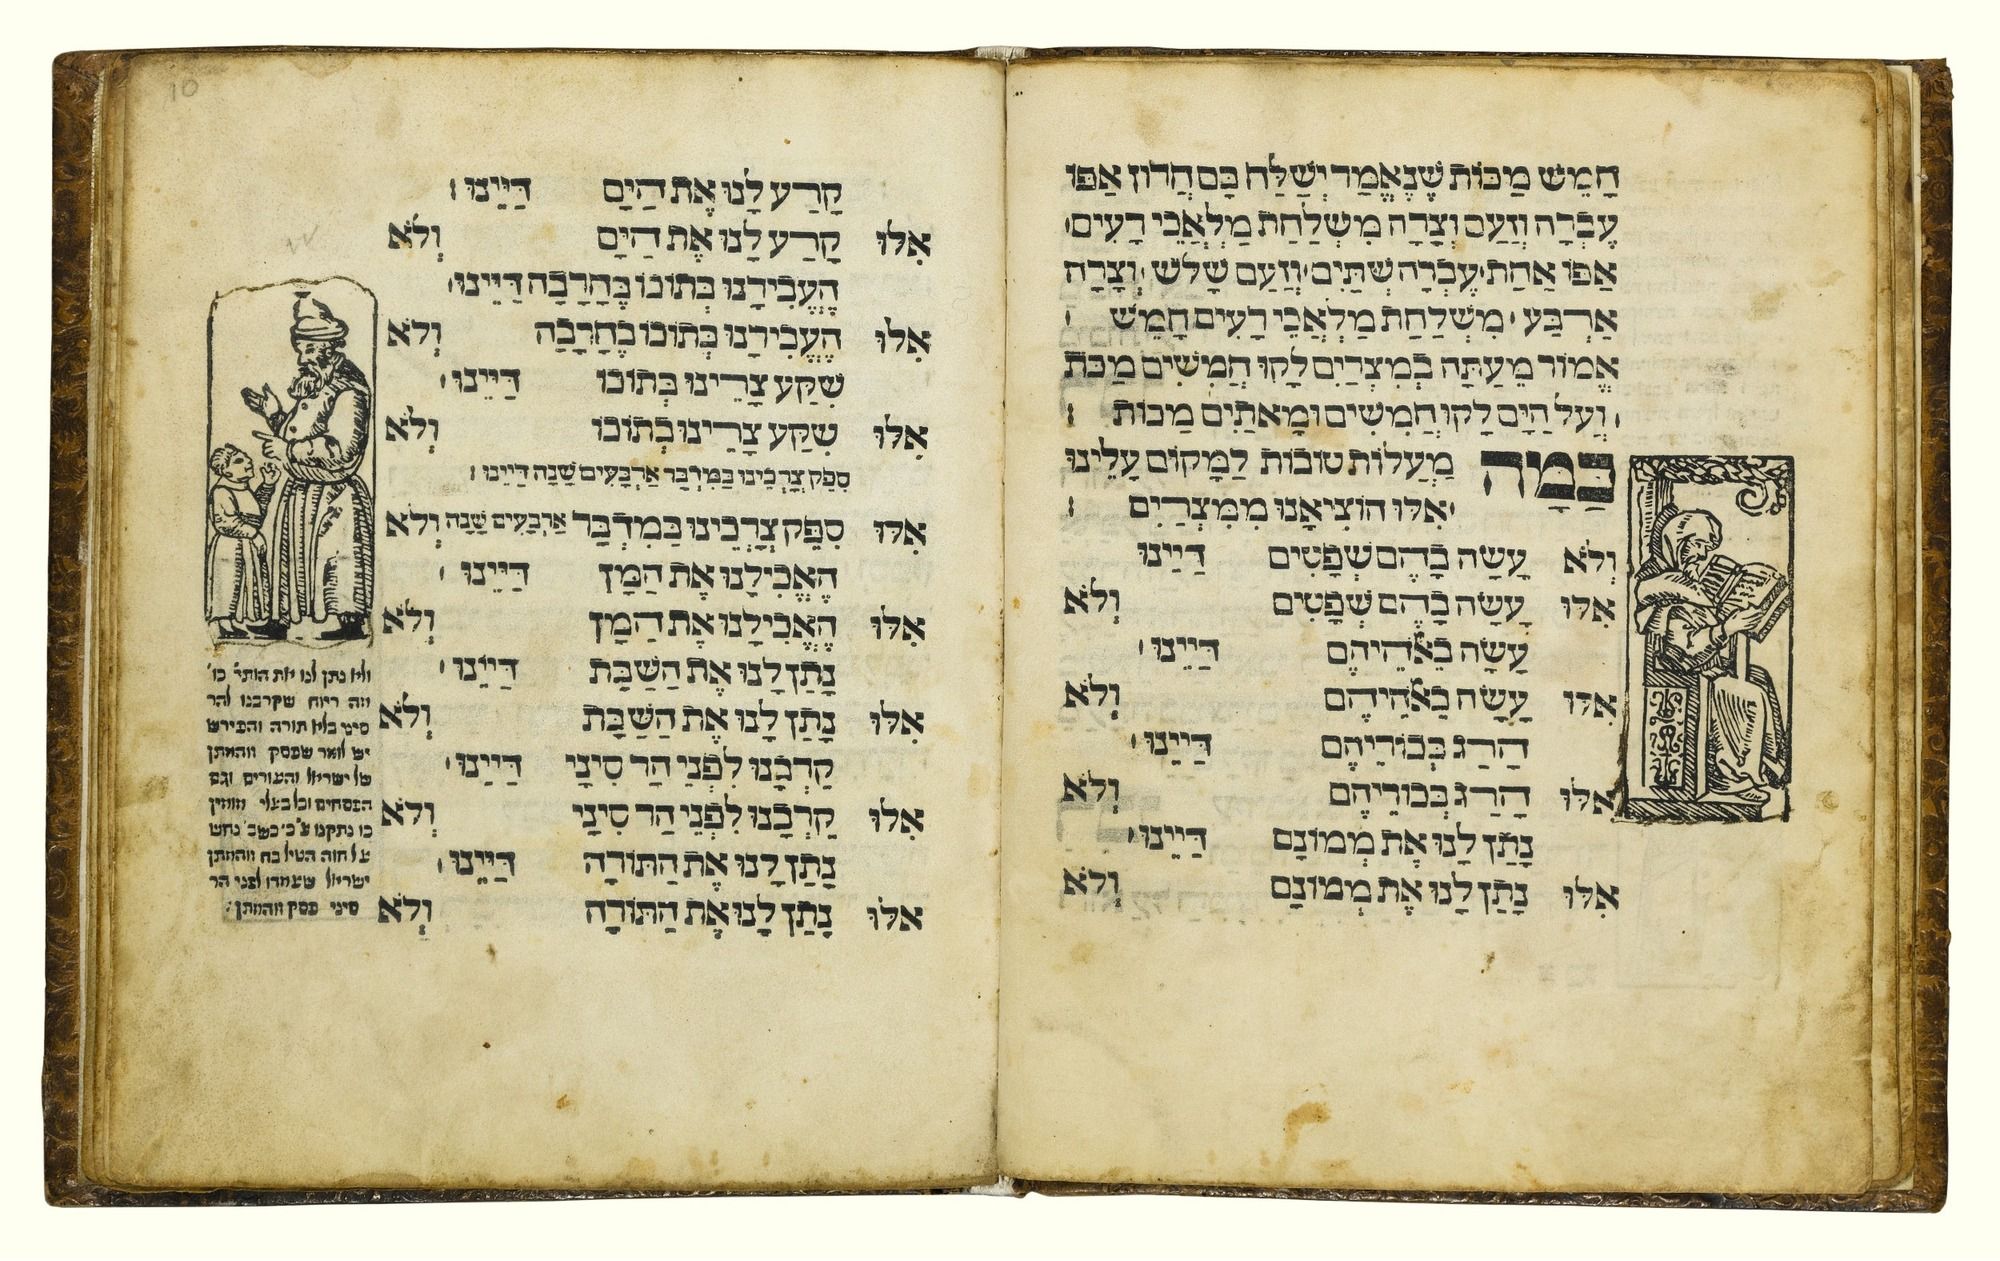 חָמֵשׁ מַכּוֹת שֶׁנֶּאֱמַר יְשַׁלַּח בָּם חֲרוֹן אַפּוֹ
עֶבְרָה וָזַעַם וְצָרָה מִשְׁלַחַת מַלְאֲכֵי רָעִים׳
אַפּוֹ אַחַת׳ עֶבְרָה שְׁתַּיִם׳ וָזַעַם שָׁלֹשׁ׳ וְצָרָה
אַרְבַּע׳ מִשְׁלַחַת מַלְאֲכֵי רָעִים חָמֵשׁ׃
אֱמוֹר מֵעַתָּה בְּמִצְרַיִם לָקוּ חֲמִשִּׁים מַכּוֹת
וְעַל הַיָּם לָקוּ חֲמִשִּׁים וּמָאתַיִם מַכּוֹת׃
כַּמָּה מַעֲלוֹת טוֹבוֹת לַמָּקוֹם עָלֵינוּ
אִלּוּ הוֹצִיאָנוּ מִמִּצְרַיִם׃
וְלֹא עָשָׂה בָהֶם שְׁפָטִים דַּיֵּינוּ
אִלּוּ עָשָׂה בָהֶם שְׁפָטִים וְלֹא
עָשָׂה בֵאלֹהֵיהֶם דַּיֵּינוּ׳
אִלּוּ עָשָׂה בֵאלֹהֵיהֶם וְלֹא
הָרַג בְּכוֹרֵיהֶם דַּיֵּינוּ׳
אִלּוּ הָרַג בְּכוֹרֵיהֶם וְלֹא
נָתַן לָנוּ אֶת מָמוֹנָם דַּיֵּינוּ׳
אִלּוּ נָתַן לָנוּ אֶת מָמוֹנָם וְלֹא
10
קָרַע לָנוּ אֶת הַיָּם דַּיֵּינוּ׃
אִלּוּ קָרַע לָנוּ אֶת הַיָּם וְלֹא
הֶעֱבִירָנוּ בְתוֹכוֹ בֶּחָרָבָה דַּיֵּינוּ׳
אִלּוּ הֶעֱבִירָנוּ בְּתוֹכוֹ בֶחָרָבָה וְלֹא
שִׁקַּע צָרֵינוּ בְּתוֹכוֹ דַּיֵּינוּ׳
אִלּוּ שִׁקַּע צָרֵינוּ בְתוֹכוֹ וְלֹא
סִפֵּק צָרְכֵינוּ בַּמִּדְבָּר אַרְבָּעִים שָׁנָה דַּיֵּינוּ׃
אִלּוּ סִפֵּק צָרְכֵינוּ בַּמִּדְבָּר אַרְבָּעִים שָׁנָה וְלֹא
הֶאֱכִילָנוּ אֶת הַמָּן דַּיֵּינוּ׳
אִלּוּ הֶאֱכִילָנוּ אֶת הַמָּן וְלֹא
נָתַן לָנוּ אֶת הַשַּׁבָּת דַּיֵּינוּ׳
אִלּוּ נָתַן לָנוּ אֶת הַשַּׁבָּת וְלֹא
קֵרְבָנוּ לִפְנֵי הַר סִינַי דַּיֵּינוּ׳
אִלּוּ קֵרְבָנוּ לִפְנֵי הַר סִינַי וְלֹא
נָתַן לָנוּ אֶת הַתּוֹרָה דַּיֵּינוּ׳
אִלּוּ נָתַן לָנוּ אֶת הַתּוֹרָה וְלֹא
ולא נתן לנו את התור׳ כו׳
ומה ריוח שקרבנו להר
סיני בלא תורה והפירש
יש לומר שפסק זוהמתן
של ישראל והעורים וגם
הפסחים וכל בעלי מומין
כו נתקנו כשב׳ נחש
על חוה הטיל בה זוהמתן
ישראל שעמדו לפני הר
סיני פסק זוהמתן׃